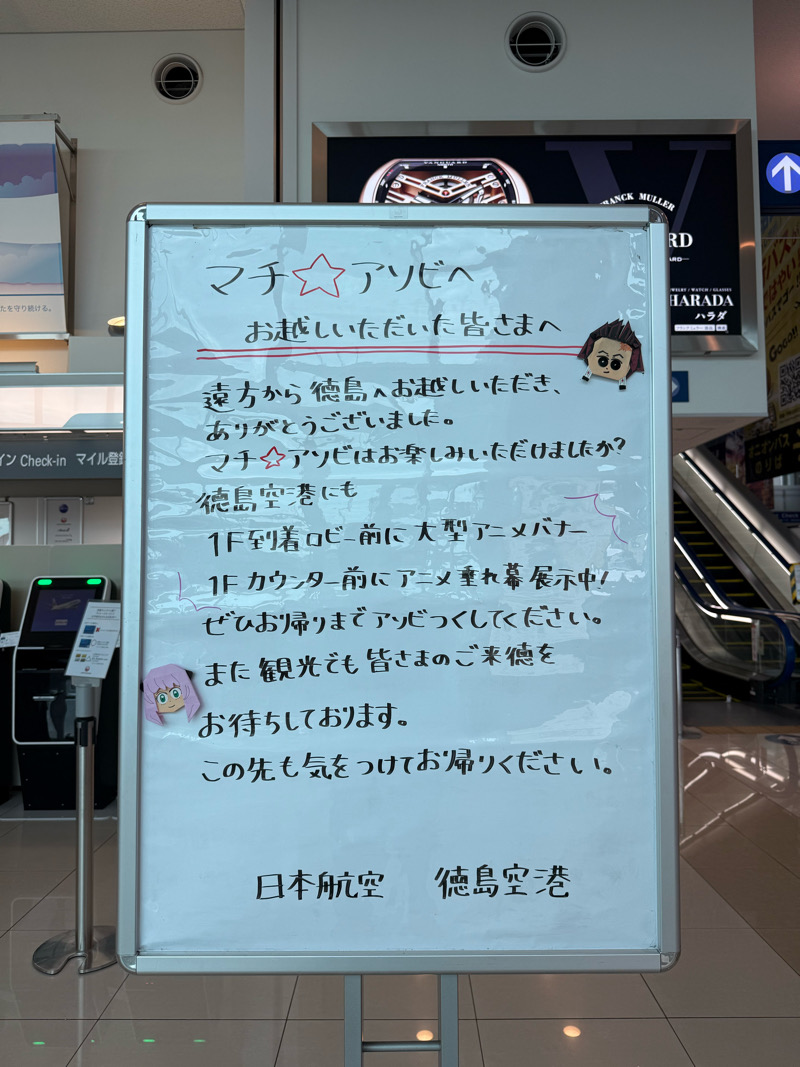 VANGUARD
FRANCK MULLER
HARADA
ハラダ
たを守り続ける。
イン Check-in マイル登録
マチ☆アソビへ
お越しいただいた皆さまへ
遠方から徳島へお越しいただき、
ありがとうございました。
マチ☆アソビはお楽しみいただけましたか?
徳島空港にも
1F到着ロビー前に大型アニメバナー
1Fカウンター前にアニメ垂れ幕展示中!
ぜひお帰りまでアソビつくしてください。
また観光でも皆さまのご来徳を
お待ちしております。
この先も気をつけてお帰りください。
日本航空 徳島空港